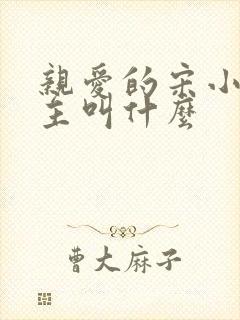 親愛的宋小
主叫什麼
曹大麻子